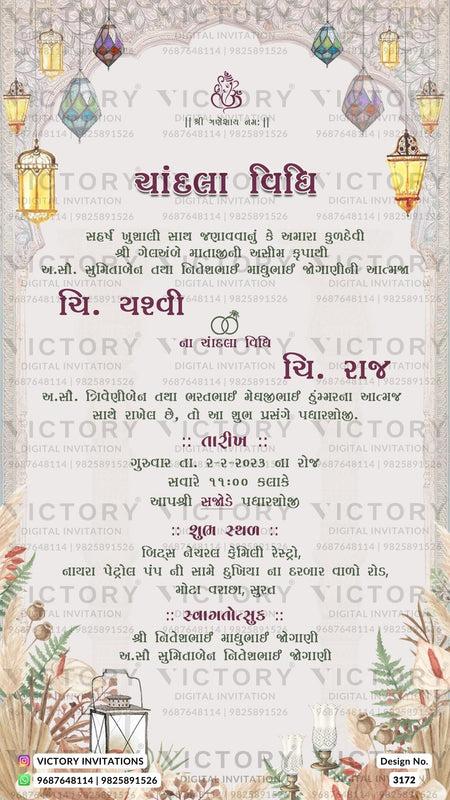 || શ્રી ગણેશાય નમ: ||
ચાંદલા વિધિ
સહર્ષ ખુશાલી સાથ જણાવવાનું કે અમારા કુળદેવી
શ્રી ગેલઅંબે માતાજીની અસીમ કૃપાથી
અ.સૌ. સુમિતાબેન તથા નિતેશભાઈ માધુભાઈ જોગાણીની આત્મજા
ચિ. યશ્વી
ના ચાંદલા વિધિ
ચિ. રાજ
અ.સૌ. ત્રિવેણીબેન તથા ભરતભાઈ મેઘજીભાઈ હુંમ્મરના આત્મજ
સાથે રાખેલ છે, તો આ શુભ પ્રસંગે પધારશોજી.
:: તારીખ ::
ગુરુવાર તા. ૨-૨-૨૦૨૩ ના રોજ
સવારે ૧૧:૦૦ કલાકે
આપશ્રી સજોડે પધારશોજી
:: શુભ સ્થળ ::
બિટ્સ નેચરલ ફેમિલી રેસ્ટ્રો,
નાયરા પેટ્રોલ પંપ ની સામે દુખિયા ના દરબાર વાળો રોડ,
મોટા વરાછા, સુરત
:: સ્વાગતોત્સુક ::
શ્રી નિતેશભાઈ માધુભાઈ જોગાણી
અ.સૌ સુમિતાબેન નિતેશભાઈ જોગાણી
VICTORY INVITATIONS
9687648114 | 9825891526
Design No.
3172
VICTORY
DIGITAL INVITATION
9687648114 | 9825891526